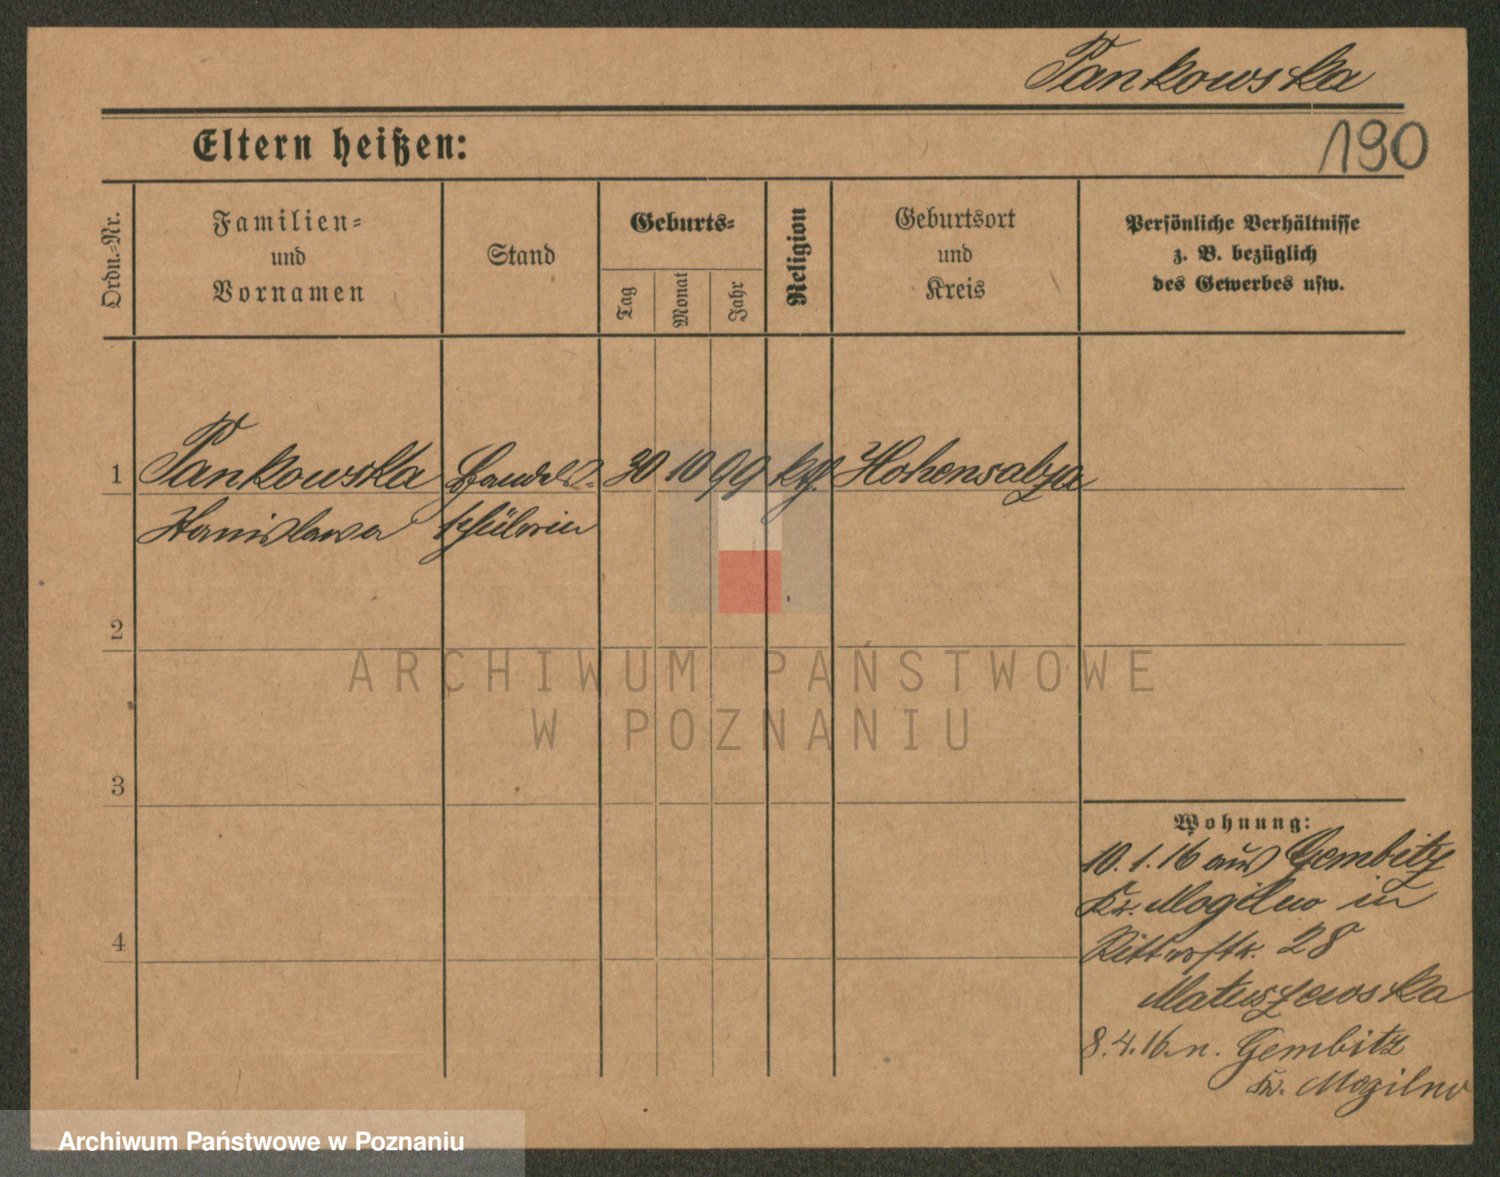 Pankowska
190
Eltern heißen:
Ordn.-Nr.
Familien-
und
Vornamen
Stand
Geburts-
Tag
Monat
Jahr
Religion
Geburtsort
und
Kreis
Persönliche Verhältnisse
z. B. bezüglich
des Gewerbes usw.
1 Pankowska Handels- 30 10 99 kth. Hohensalza
Stanislawa schülerin
2
3
4
Wohnung:
10.1.16 aus Gembitz
Kr. Mogilno in
Ritterstr. 28
Matuszewska
8.4.16 n. Gembitz
Kr. Mogilno
ARCHIWUM PAŃSTWOWE
W POZNANIU
Archiwum Państwowe w Poznaniu